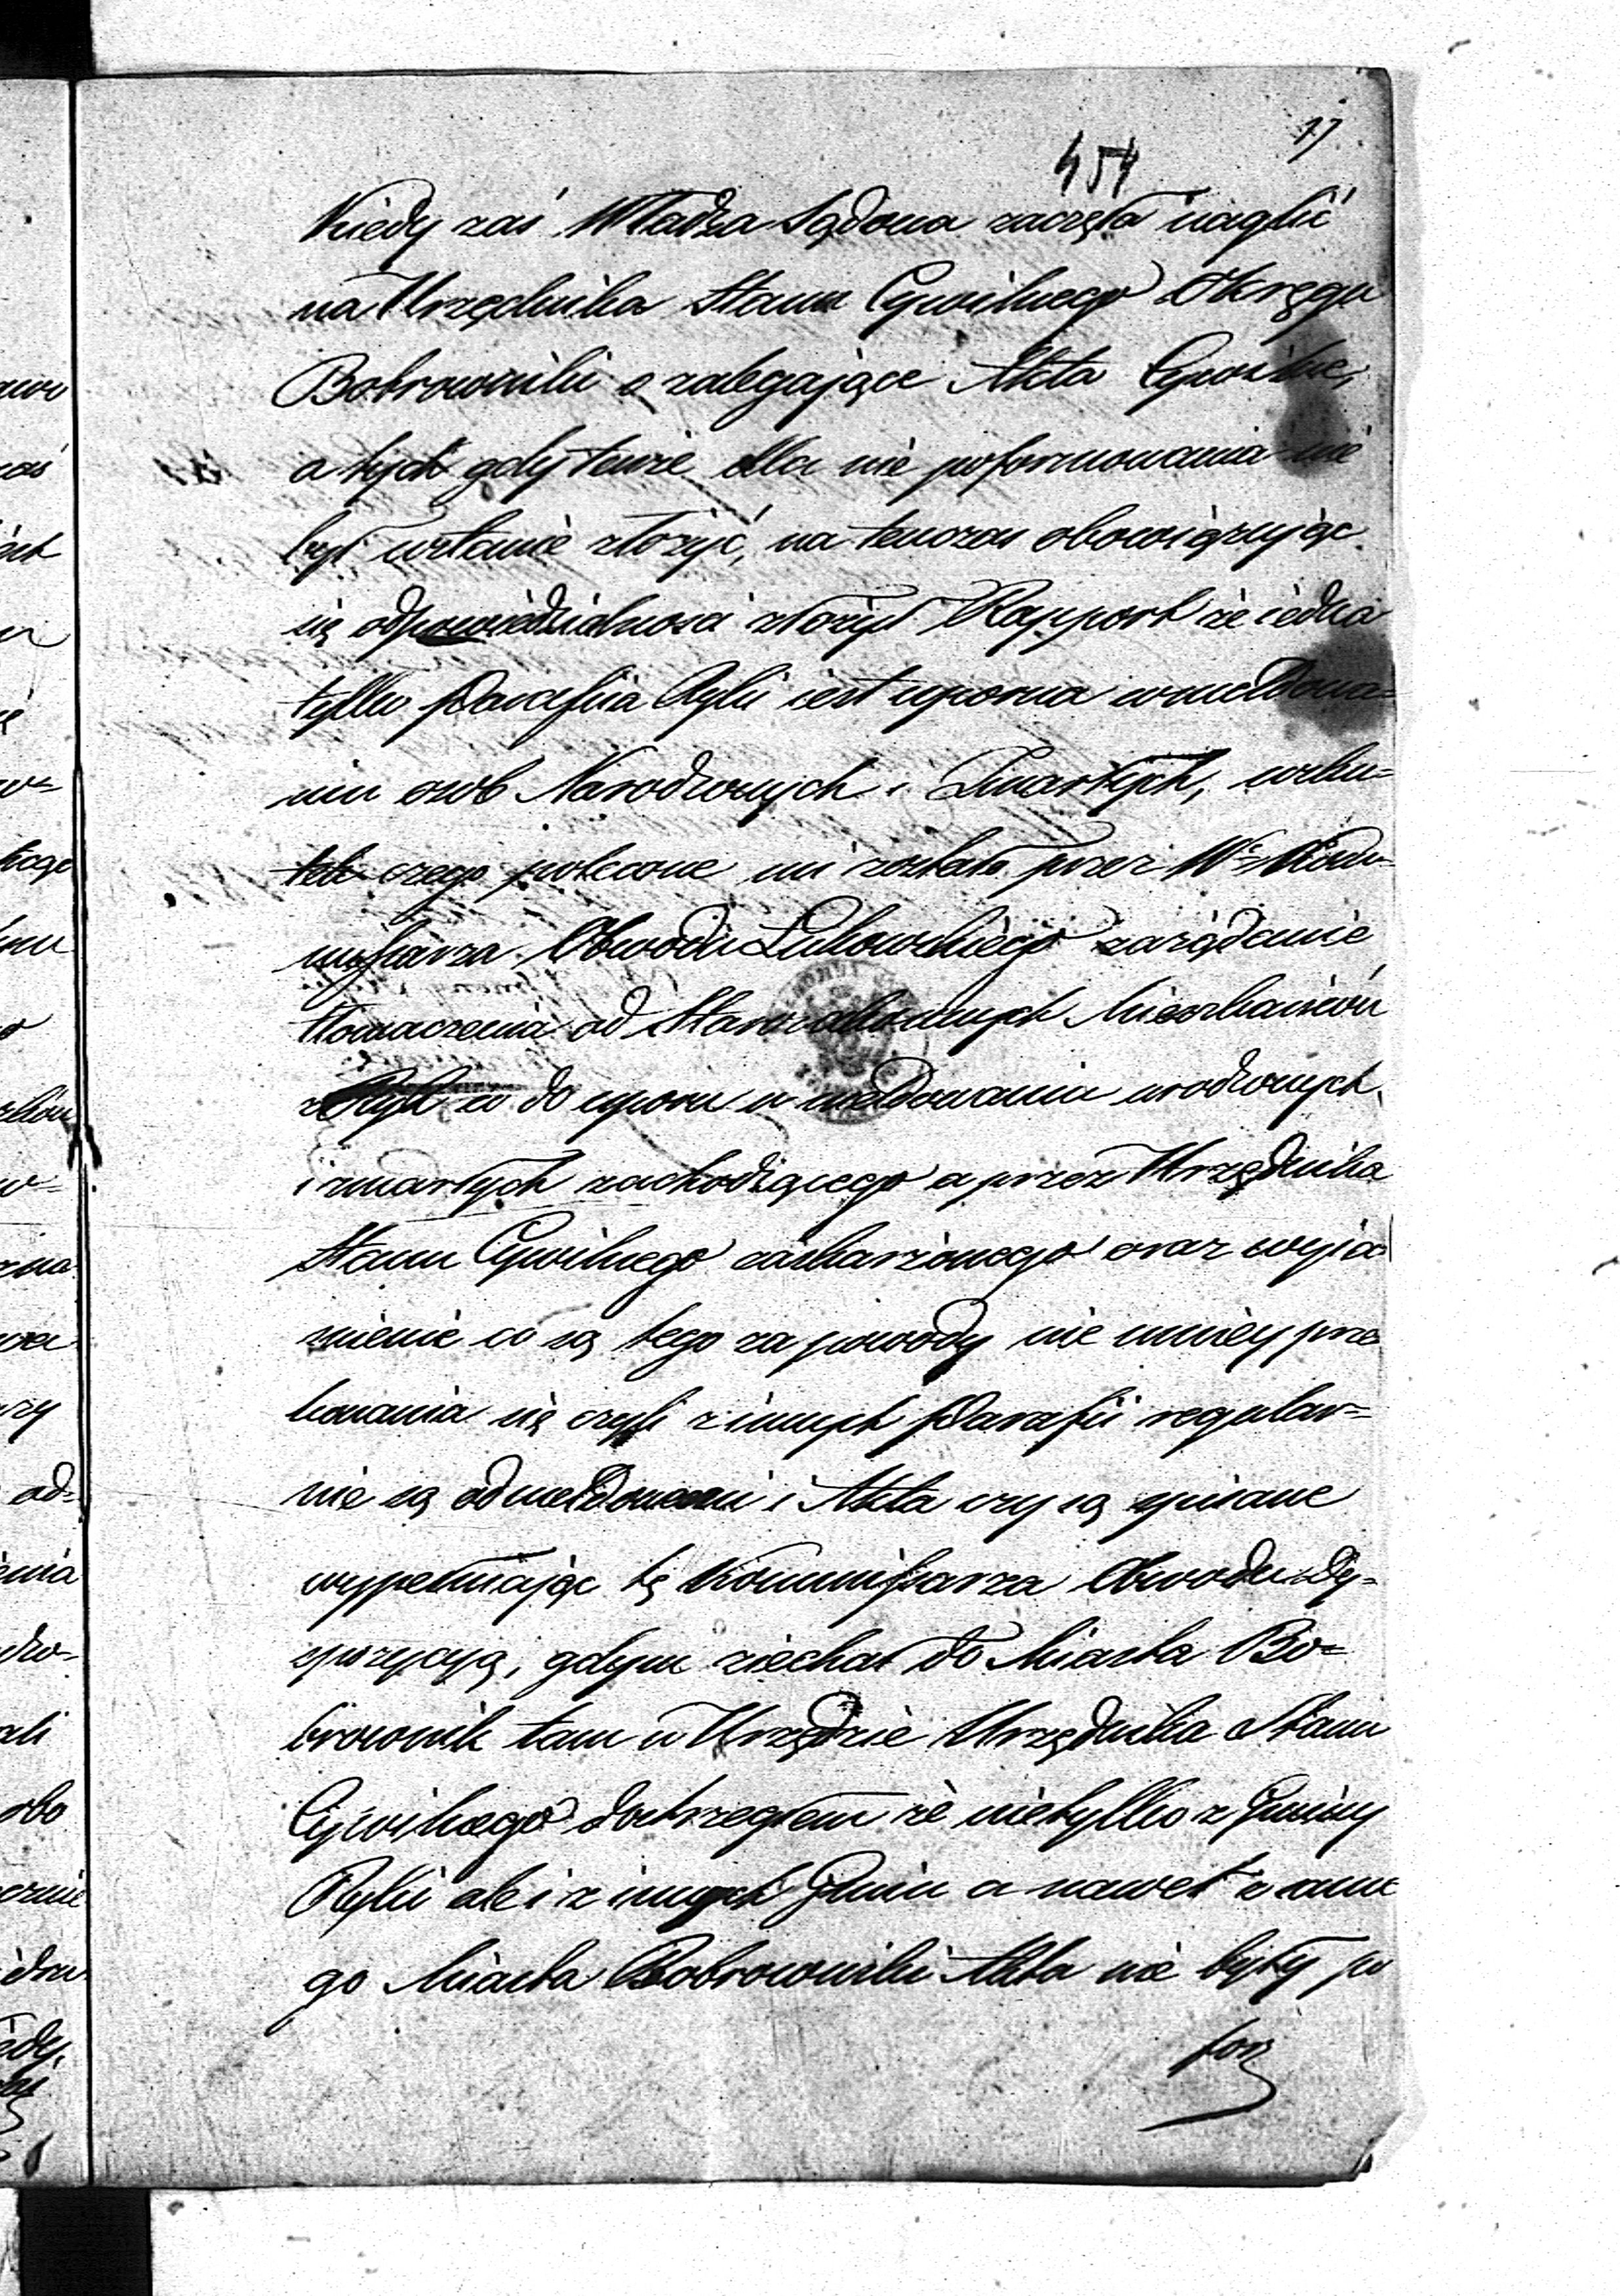 17
454
Kiedy zaś Władza Sądowa zaczęła naglić
na Urzędnika Stanu Cywilnego Okręgu
Bobrowniki o zalegające Akta Cywilne,
a tych gdy tenże dla nie poformowania nie
był wstanie złożyć, na tenczas obowiązując
się odpowiedzialnosci złożył Rapport że iedna
tylko Parafiia Ryki iest uporna w meldowa=
niu osob Narodzonych i Zmarłych, wsku=
tek czego polecone mi zostało przez W° Kom=
missarza Obwodu Łukowskiego zażądanie
tłomaczenia od Mieszkańców
z Ryk co do uporu w meldowaniu urodzonych
i zmarłych zachodzącego a przez Urzędnika
Stanu Cywilnego zaskarżonego oraz wyia
snienie co są tego za powody nie mniey prze
konania się czyli z innych Parafii regular=
nie są odmeldowani i Akta czy są spisane
wypełniając tę Kommissarza Obwodu Dy=
spozycyą, gdym ziechał do Miasta Bo=
brownik tam w Urzędzie Urzędnika Stanu
Cywilnego dostrzegłem że nietylko z Gminy
Ryki ale i z innych Gmin a nawet z same
go Miasta Bobrowniki Akta nie były po
for